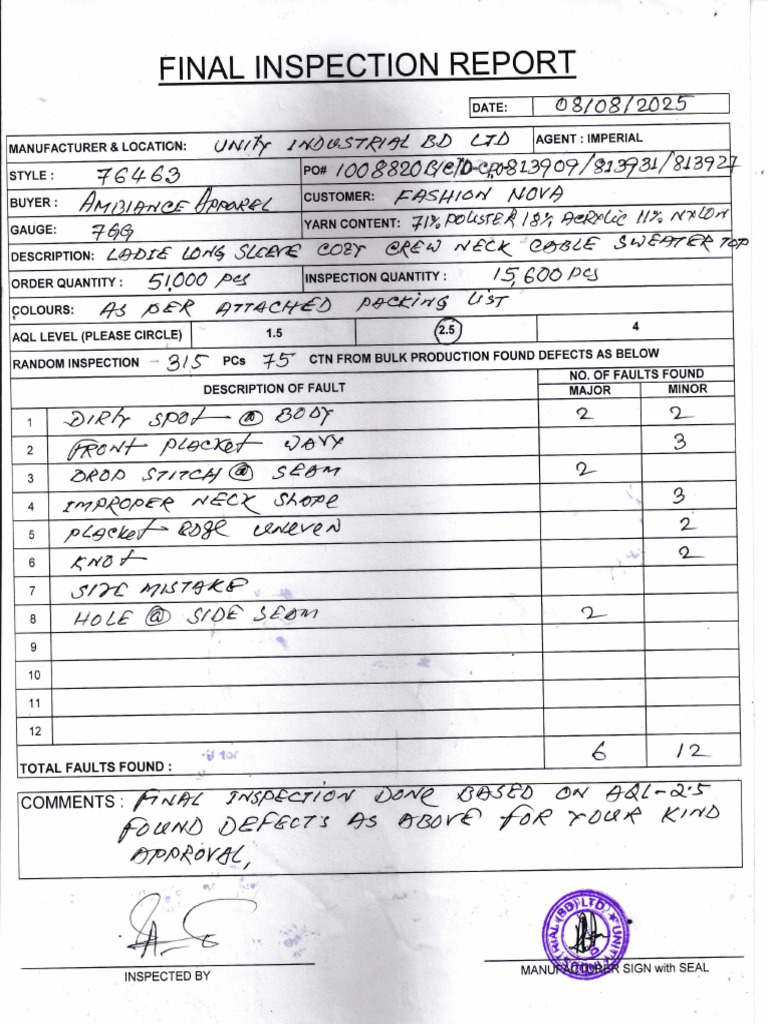 FINAL INSPECTION REPORT
DATE: 08/08/2025
MANUFACTURER & LOCATION: UNITY INDUSTRIAL BD LTD AGENT : IMPERIAL
STYLE : 76463 PO# 1008820 813909/813931/813927
BUYER : AMBIANCE APPAREL CUSTOMER: FASHION NOVA
GAUGE: 7GG YARN CONTENT: 71% POLISTER 18% ACRYLIC 11% NYLON
DESCRIPTION: LADIE LONG SLEEVE COZY CREW NECK CABLE SWEATER TOP
ORDER QUANTITY : 51,000 PCS INSPECTION QUANTITY : 15,600 PCS
COLOURS: AS PER ATTACHED PACKING LIST
AQL LEVEL (PLEASE CIRCLE) 1.5 2.5 4
RANDOM INSPECTION - 315 PCs 75 CTN FROM BULK PRODUCTION FOUND DEFECTS AS BELOW
DESCRIPTION OF FAULT NO. OF FAULTS FOUND
MAJOR MINOR
1 DIRTY SPOT @ BODY 2 2
2 FRONT PLACKET WAVY 3
3 DROP STITCH @ SEAM 2
4 IMPROPER NECK SHOPE 3
5 PLACKET EDGE UNEVEN 2
6 KNOT 2
7 SIZE MISTAKE
8 HOLE @ SIDE SEAM 2
9
10
11
12
TOTAL FAULTS FOUND : 6 12
COMMENTS : FINAL INSPECTION DONE BASED ON AQL-2.5
FOUND DEFECTS AS ABOVE FOR YOUR KIND
APPROVAL,
INSPECTED BY
MANUFACTURER SIGN with SEAL